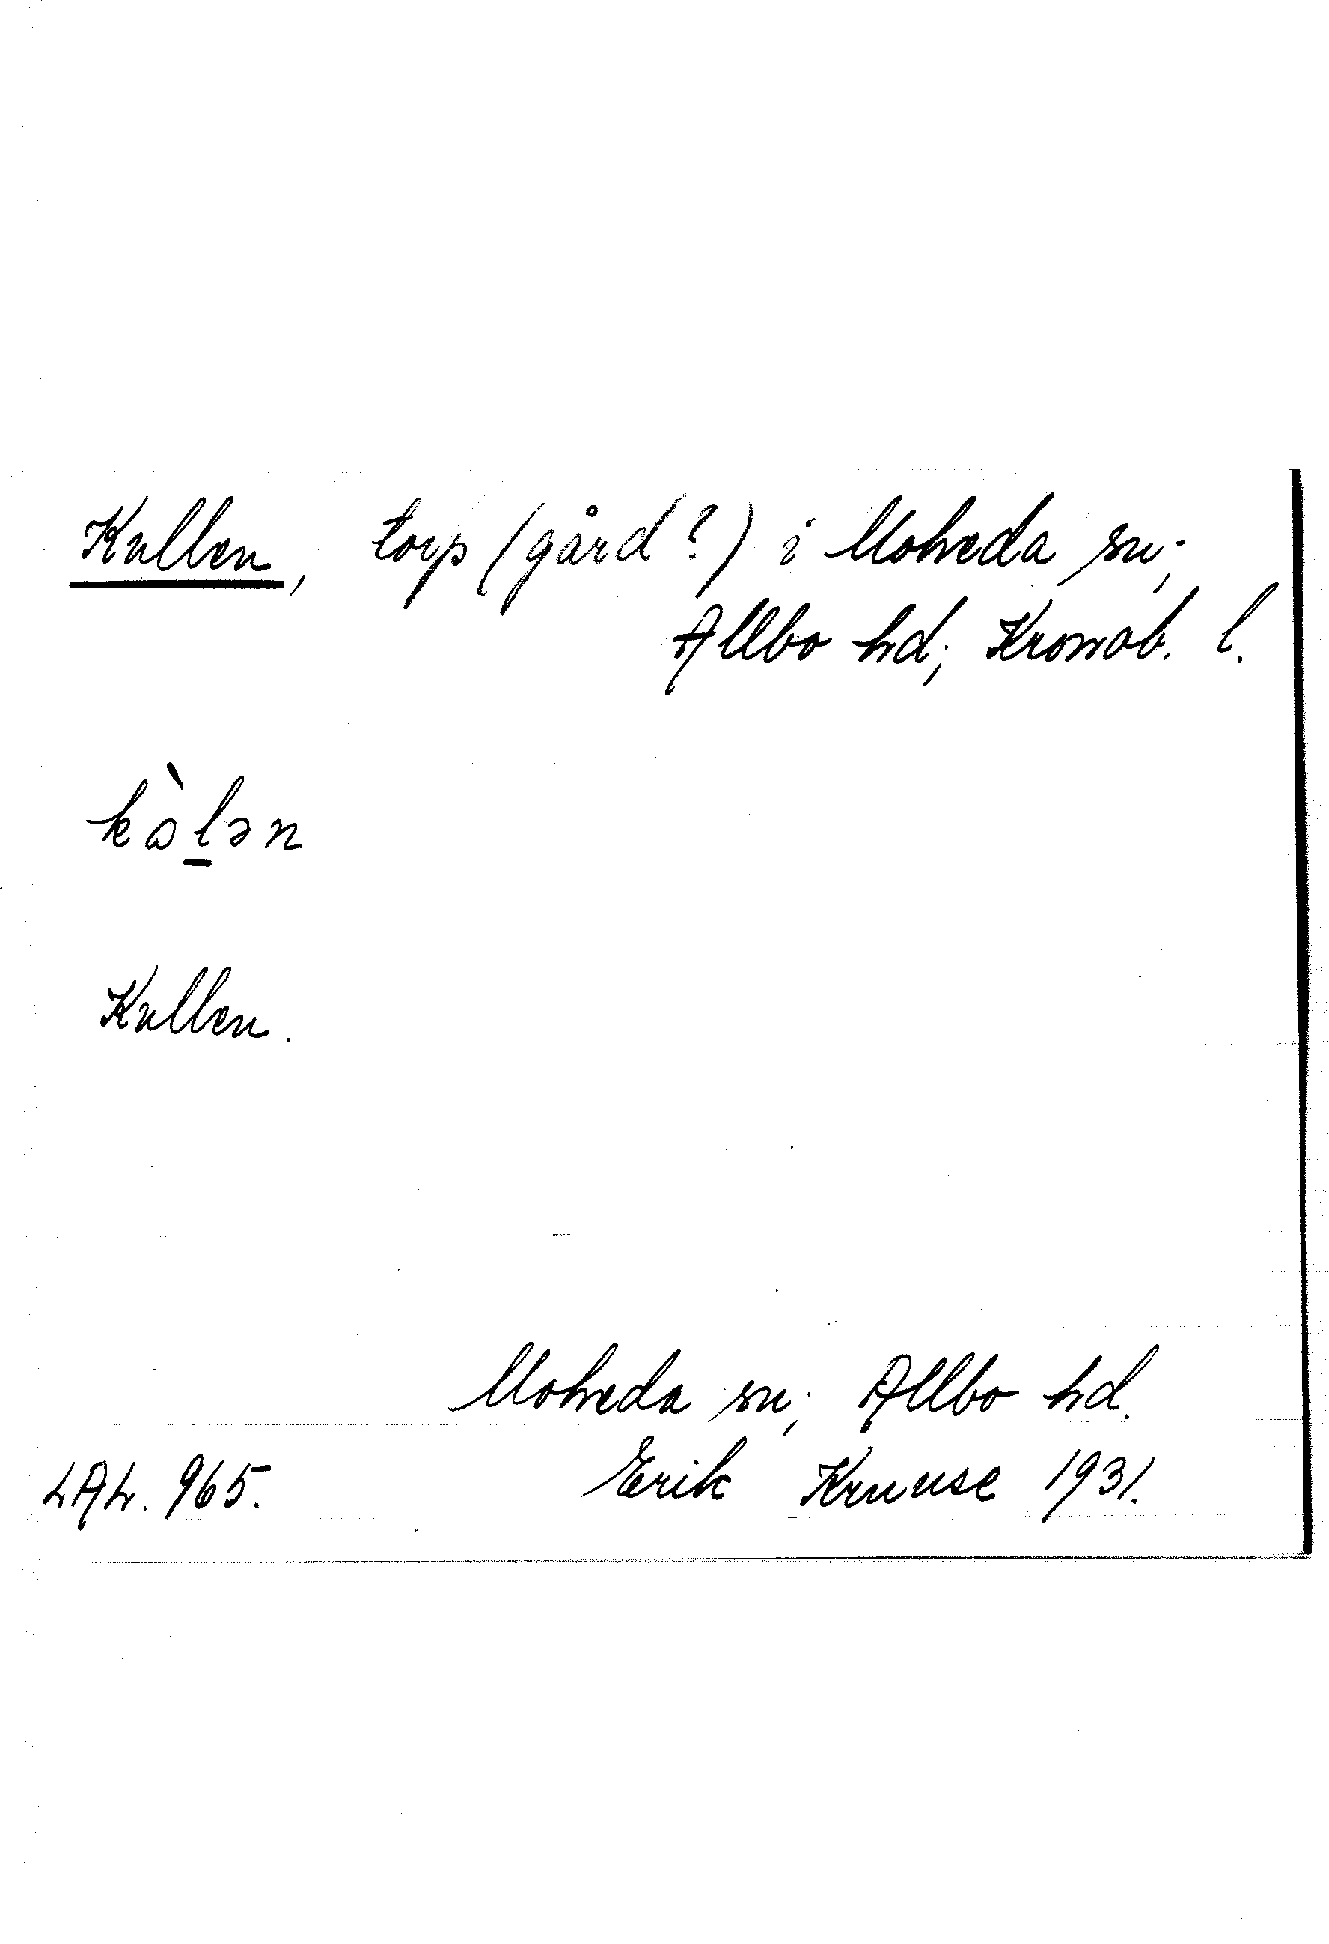 Kullen, torp (gård?) i Moheda sn;
Allbo hd; Kronob. l.
kòl̲ən
Kullen.
Moheda sn; Allbo hd.
LAL. 965.
Erik Kruuse 1931.